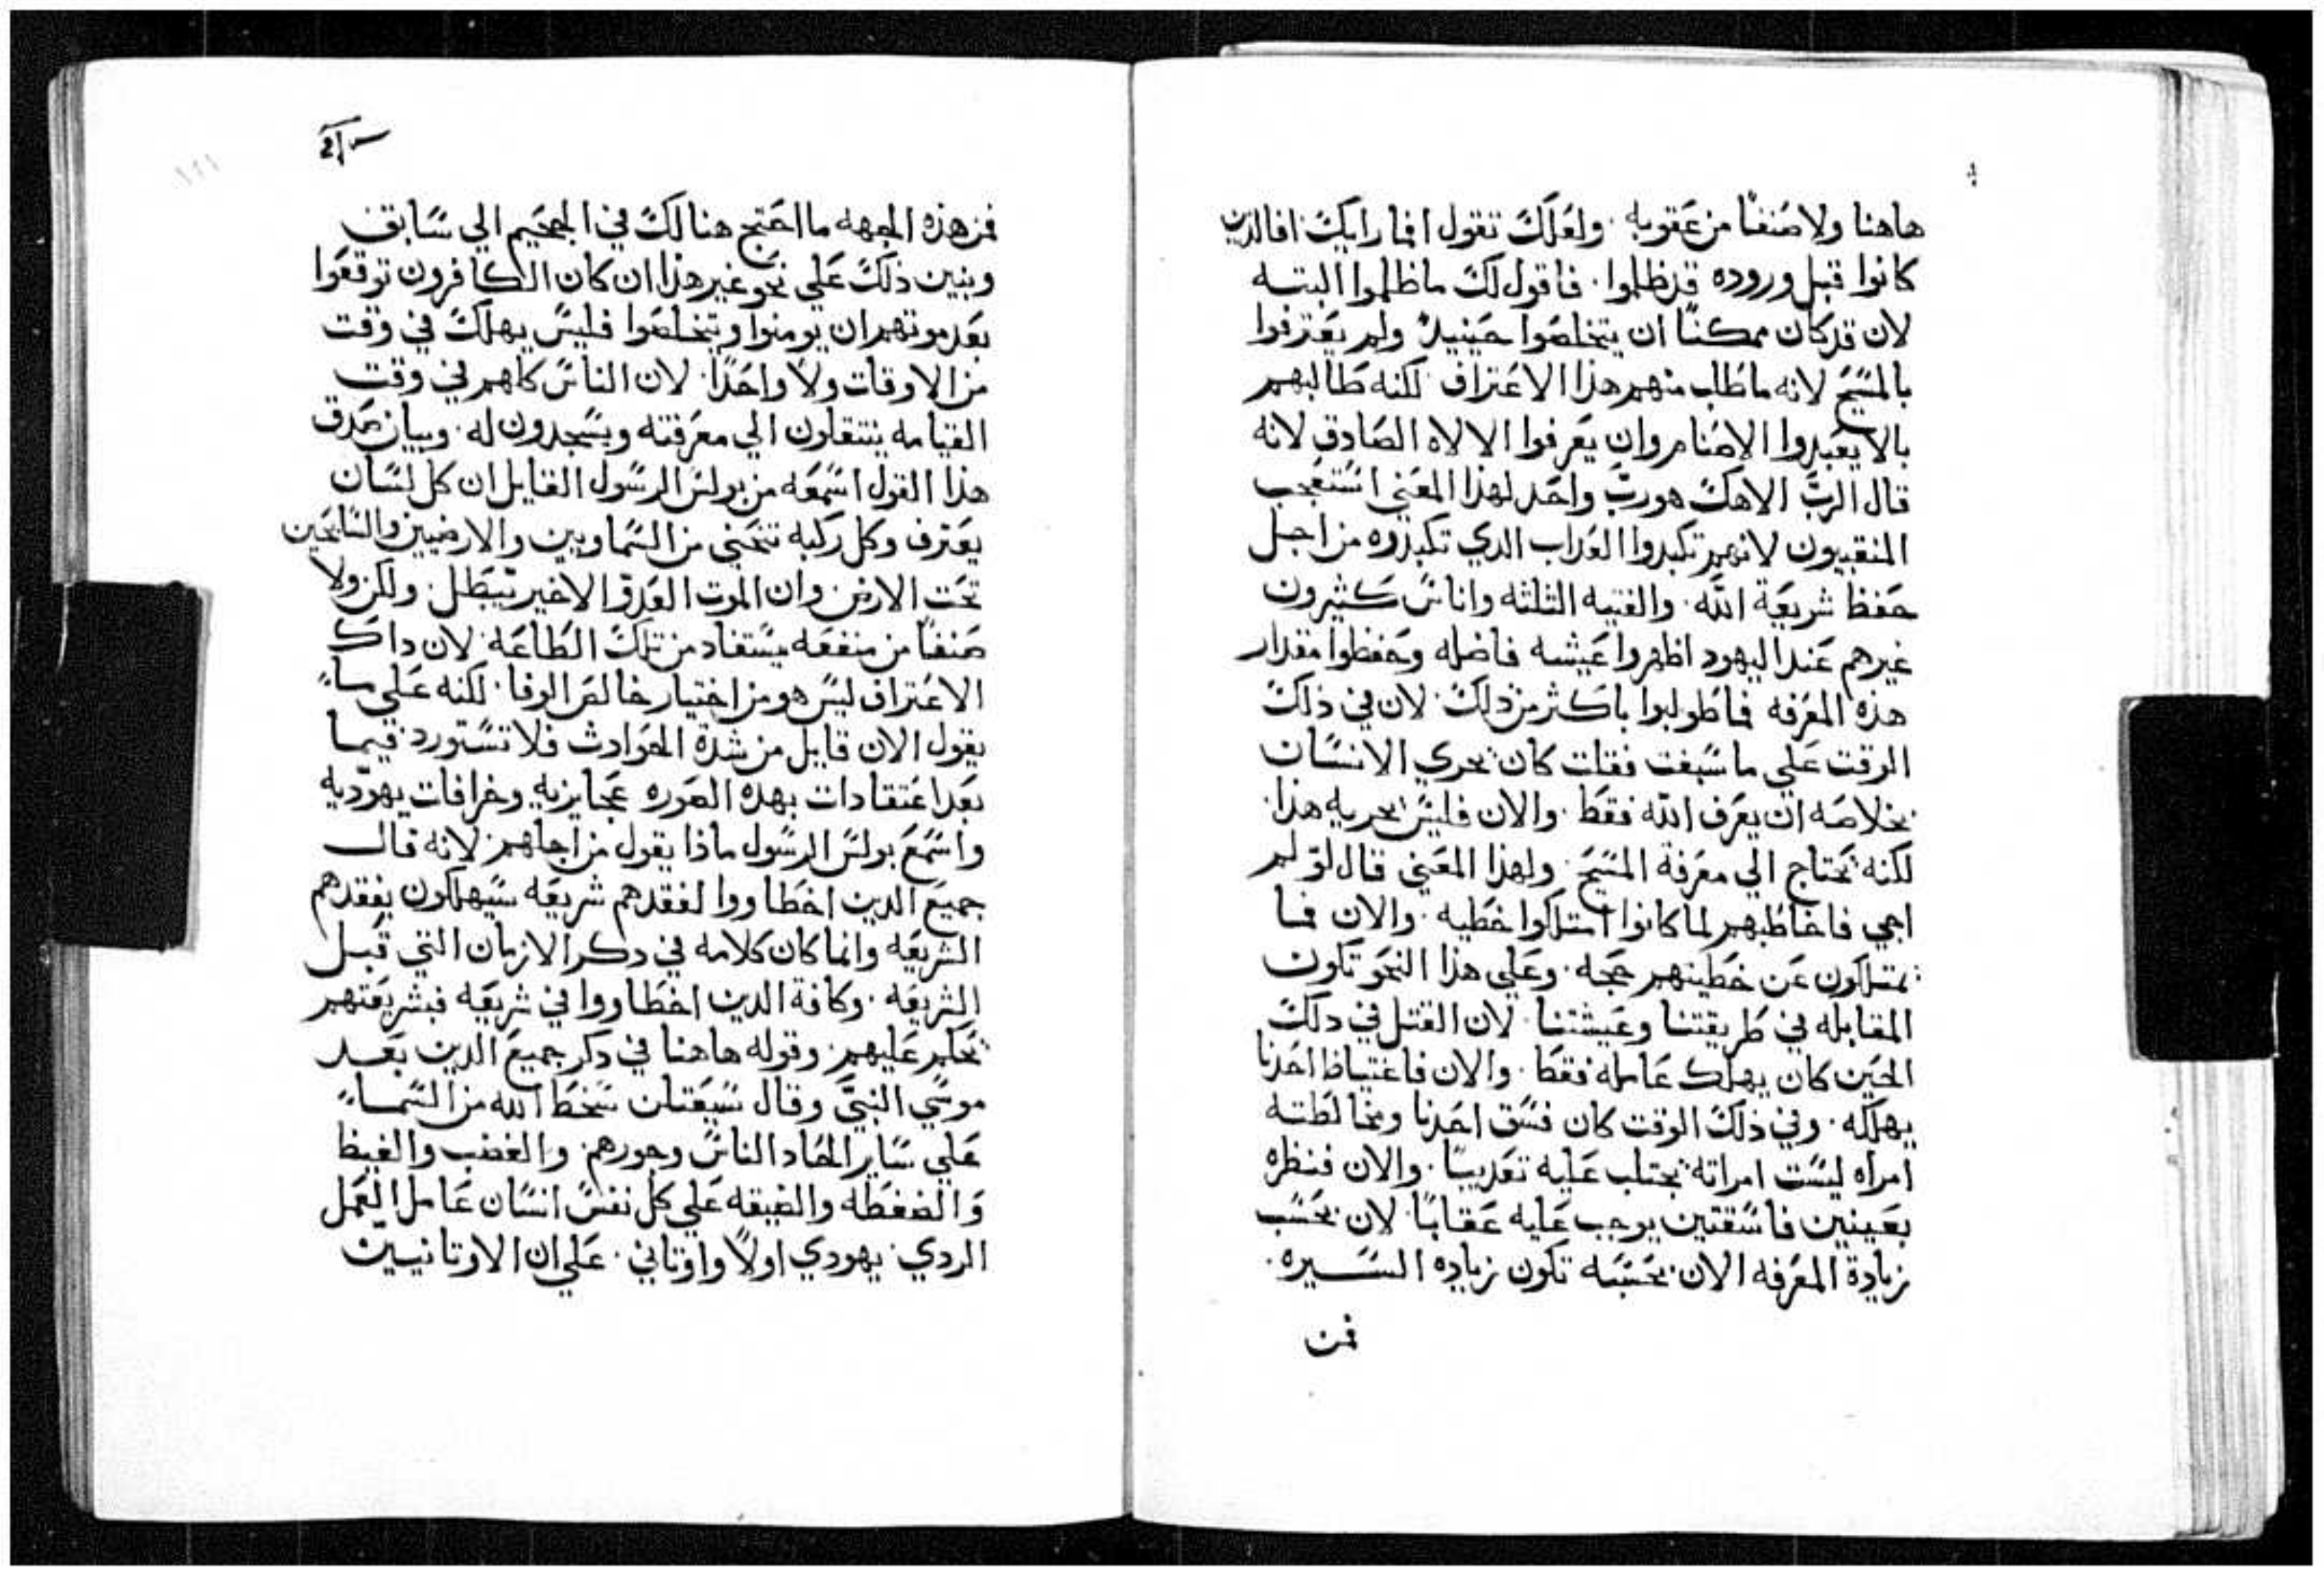 هاهنا ولا صنفًا من عقوبه . ولعلك تقول افما رايك افالدين
كانوا قبل وروده قد ظلموا . فاقول لك ما ظلموا البته
لان قد كان ممكنًا ان يتخلصوا حينيدٍ ولم يعترفوا
بالمسيح لانه ما طلب منهم هذا الاعتراف لكنه طالبهم
بالا يعبدوا الاصنام وان يعرفوا الالاه الصادق لانه
قال الربّ الاهك هو ربّ واحد لهذا المعني استعجب
المنقبيون لانهم تكبدوا العداب الدي تكبدوه من اجل
حفظ شريعة الله . والفتيه الثلثه واناسٌ كثيرون
غيرهم عند اليهود اظهروا عيشه فاضله وحفظوا مقدار
هذه المعرفه فما طولبوا باكثر من ذلك . لان في ذلك
الوقت علي ما سبقت فقلت كان يحري الانسان
بخلاصه ان يعرف الله فقط . والان فليس يحريه هذا .
لكنه يحتاج الي معرفة المسيح . ولهذا المعني قال لو لم
اجي فاخاطبهم لما كانوا امتلكوا خطيه . والان فما
يمتلكون عن خطيتهم حجه . وعلي هذا النحو تكون
المقابله في طريقتنا وعيشتنا . لان القتل في دلك
الحين كان يهلك عامله فقط . والان فاغتياظ احدنا
يهلكه . وفي ذلك الوقت كان فسق احدنا ومخالطته
امراه ليست امراته يجتلب عليه تعديبًا . والان فنظره
بعينين فاسقتين يوجب عليه عقابًا لان بحسب
زيادة المعرفه الان بحسبه تكون زياده السيره .
فمن
فمن هذه الجهه ما احتج هنالك في الجحيم الي سابق
ونبين ذلك علي نحو غير هذا ان كان الكافرون توقعوا
بعد موتهم ان يومنوا ويتخلصوا فليس يهلك في وقت
من الاوقات ولا واحدًا . لان الناس كلهم في وقت
القيامه ينتقلون الي معرفته ويسجدون له . وبيان صدق
هذا القول اسمعه من بولس الرسول القايل ان كل لسان
يعترف وكل ركبه تنحني من السماويين والارضيين والنايحين
تحت الارض وان الموت العدوّ الاخير يتبطل . ولكن ولا
صنفًا من منفعه يستفاد من تلك الطاعه . لان داك
الاعتراف ليس هو من اختيار خالص الوفا . لكنه علي ما
يقول الان قايل من شدة الحوادث فلا نستورد فيما
بعد اعتقادات بهده الصوره عجايزيه وخرافات يهوديه
واسمع بولس الرسول ماذا يقول من اجلهم لانه قال
جميع الدين اخطاووا لفقدهم شريعه سيهلكون بفقدهم
الشريعه وانما كان كلامه في دكر الازمان التي قبل
الشريعه . وكافة الدين اخطاووا في شريعه فبشريعتهم
يحكم عليهم . وقوله هاهنا في دكر جميع الدين بعد
موسي النبيّ وقال سيعتلن سخط الله من السما
علي ساير الحاد الناس وجورهم . والغضب والغيظ
والضغطه والضيقه علي كل نفس انسان عامل العمل
الردي . يهودي اولًا واوتاني . علي ان الاوتانيين